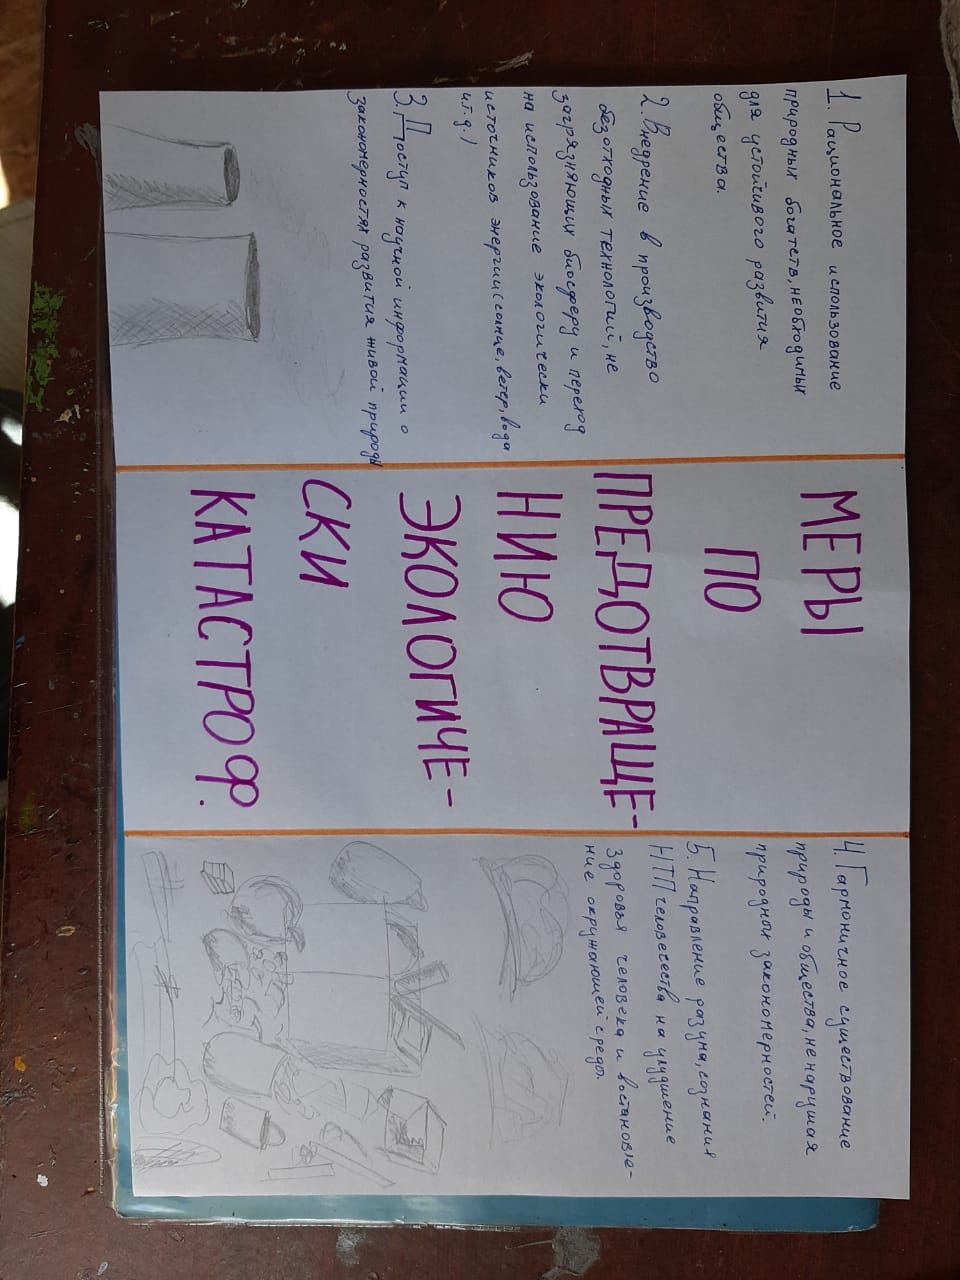 1. Рациональное использование
природных богатств, необходимых
для устойчивого развития
общества.
2. Внедрение в производство
безотходных технологий, не
загрязняющих биосферу и переход
на использование экологически
источников энергии (солнце, ветер, вода
и.т.д.)
3. Поступ к научной информации о
закономерностях развития живой природы
МЕРЫ
ПО
ПРЕДОТВРАЩЕ-
НИЮ
ЭКОЛОГИЧЕ-
СКИ
КАТАСТРОФ.
4. Гармоничное существование
природы и общества, не нарушая
природных закономерностей.
5. Направление разума, сознания
НТП человечества на улудшение
здоровья человека и востановле-
ние окружающей среды.